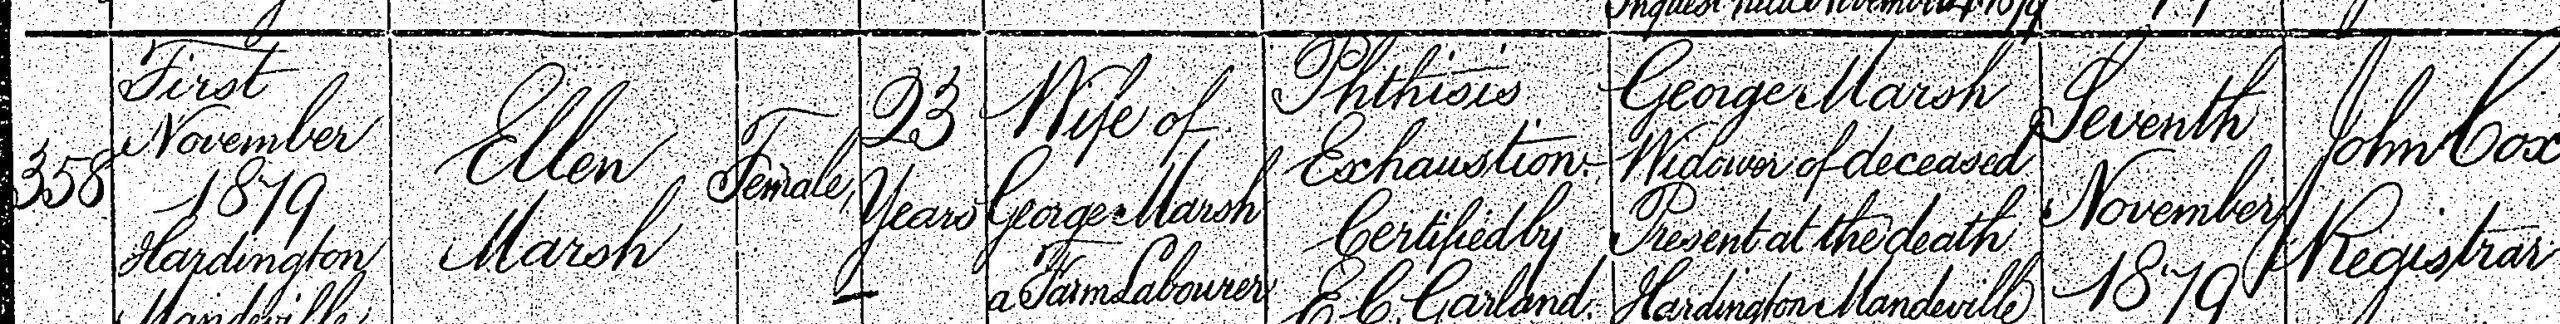 Inquest held November 4 1879
358
First
November
1879
Hardington
Mandeville
Ellen
Marsh
Female
23
Years
Wife of
George Marsh
a Farm Labourer
Phthisis
Exhaustion.
Certified by
E C. Garland.
George Marsh
Widower of deceased
Present at the death
Hardington Mandeville
Seventh
November
1879
John Cox
Registrar